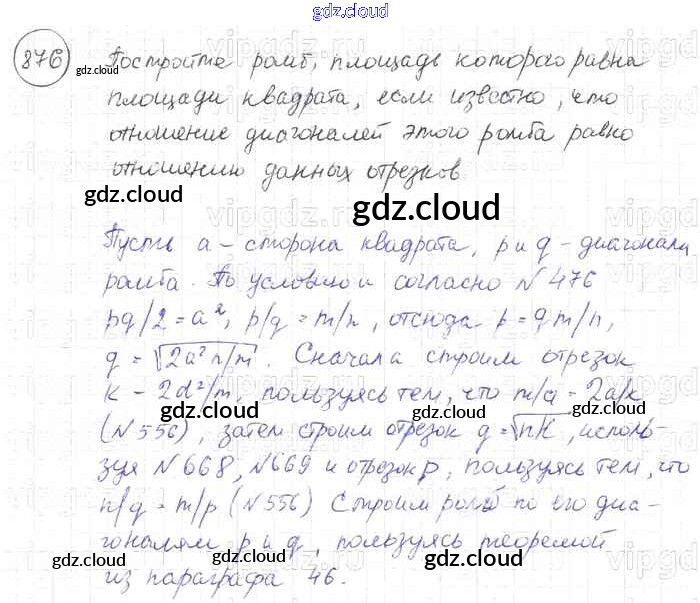 gdz.cloud
876 Постройте ромб, площадь которого равна
площади квадрата, если известно, что
отношение диагоналей этого ромба равно
отношению данных отрезков.
Пусть a – сторона квадрата, p и q – диагонали
ромба. По условию и согласно № 476
pq/2 = a², p/q = m/n, отсюда p = qm/n,
q = √2a²n/m. Сначала строим отрезок
k – 2d²/m, пользуясь тем, что m/a = 2a/k
(№ 556), затем строим отрезок q = √nk, исполь-
зуя № 668, № 669 и отрезок p, пользуясь тем, что
n/q = m/p (№ 556) Строим ромб по его диа-
гоналям p и q, пользуясь теоремой
из параграфа 46.